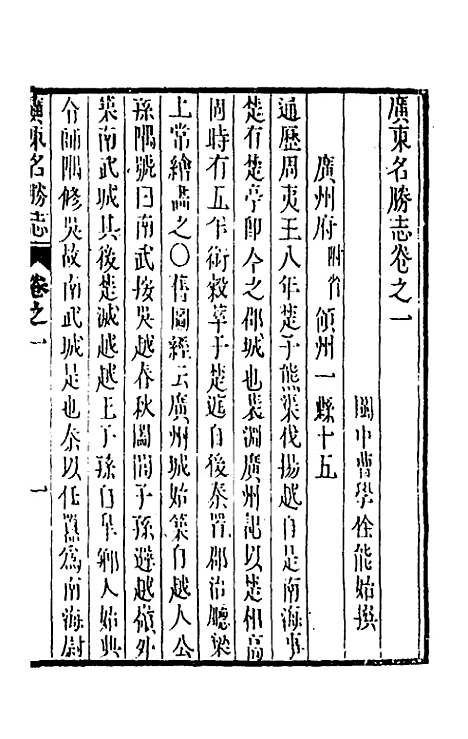 廣東名勝志卷之一
閩中曹學佺能始撰
廣州府附省領州一縣十五
通歷周夷王八年楚子熊渠伐揚越自是南海事
楚有楚亭卽今之郡城也裴淵廣州記以楚相高
固時有五羊銜穀萃于楚庭自後泰置郡治廳梁
上常繪畵之〇舊圖經云廣州城始築自越人公
孫隅號曰南武按吳越春秋闔閭子孫避越嶺外
築南武城其後楚滅越越王子孫自臯鄉入始興
令師隅修吳故南武城是也秦以任囂爲南海尉
廣東名勝志
卷之一
一